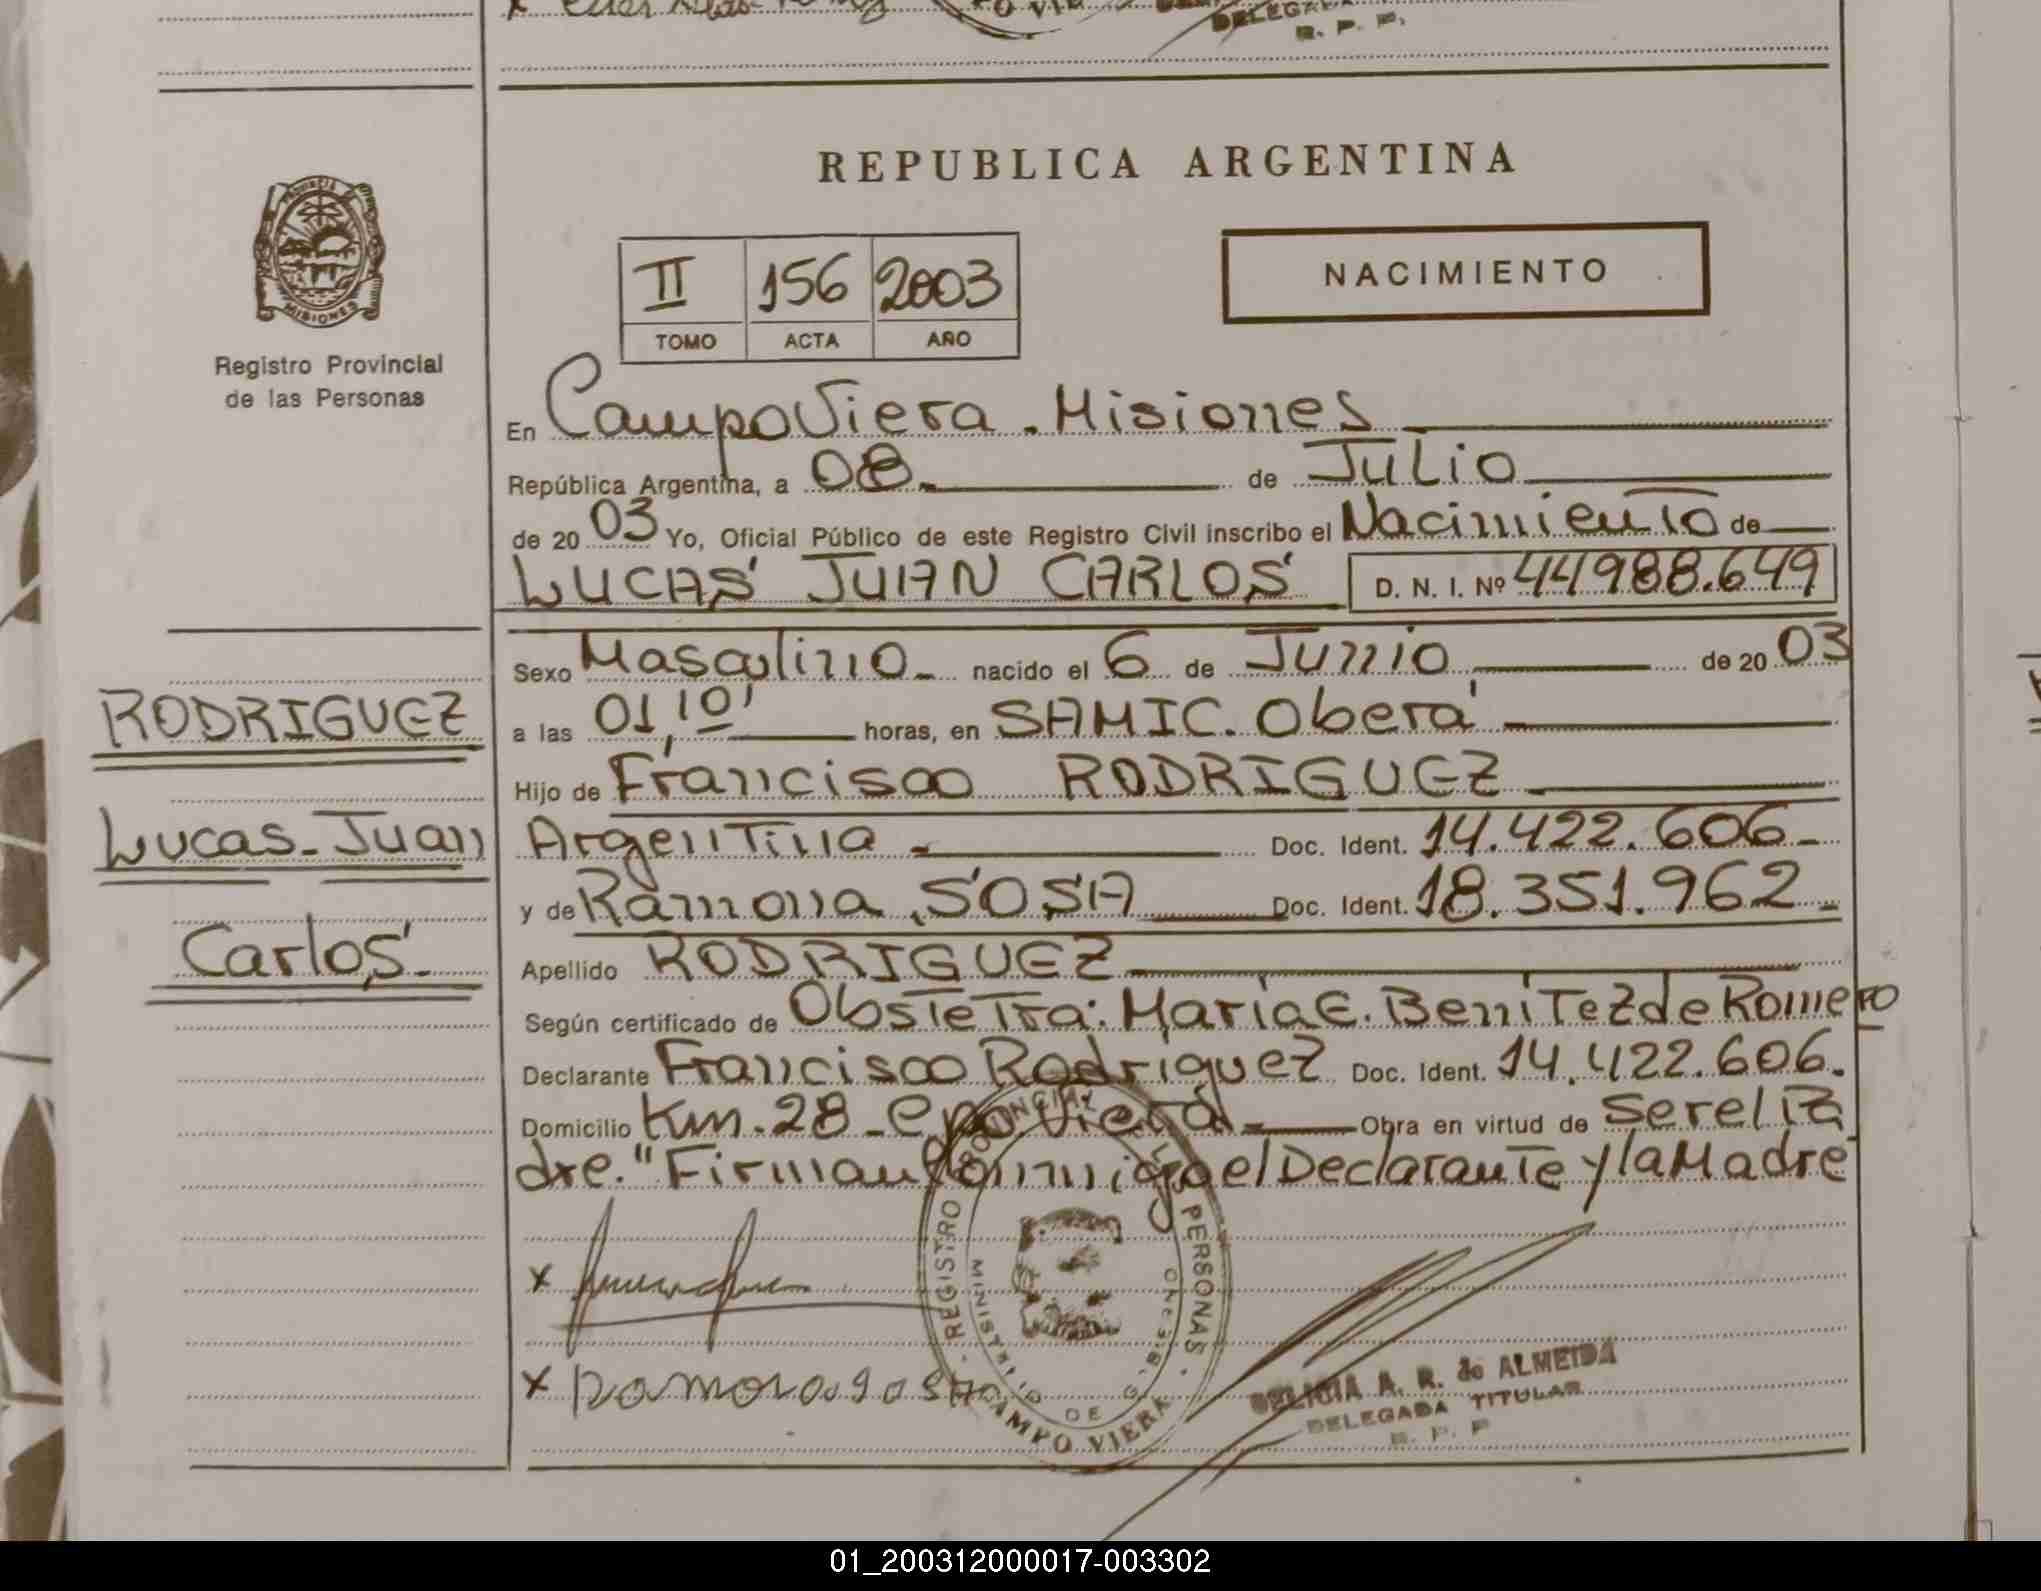 DELEGADA
R. P. P.
REPUBLICA ARGENTINA
PROVINCIA
MISIONES
Registro Provincial
de las Personas
II 156 2003
TOMO ACTA AÑO
NACIMIENTO
En Campo Viera. Misiones
República Argentina, a 08 de Julio
de 20 03 Yo, Oficial Público de este Registro Civil inscribo el Nacimiento de
LUCAS JUAN CARLOS D. N. I. Nº 44988.649
Sexo Masculino nacido el 6 de Junio de 20 03
a las 01,10' horas, en SAMIC. Oberá
RODRIGUEZ
Hijo de Francisco RODRIGUEZ
Lucas-Juan
Argentina Doc. Ident. 14.422.606-
y de Ramona SOSA Doc. Ident. 18.351.962
Carlos
Apellido RODRIGUEZ
Según certificado de Obstetra: María E. Benitez de Romero
Declarante Francisco Rodriguez Doc. Ident. 14.422.606.
Domicilio Km. 28 - Cpo. Viera Obra en virtud de ser el Pa
dre." Firman conmigo el Declarante y la Madre
x
x ramona sosa
REGISTRO PROVINCIAL PERSONAS
MINISTERIO DE GOBIERNO
CAMPO VIERA
DELICIA A. R. de ALMEIDA
DELEGADA TITULAR
R. P. P
01_200312000017-003302